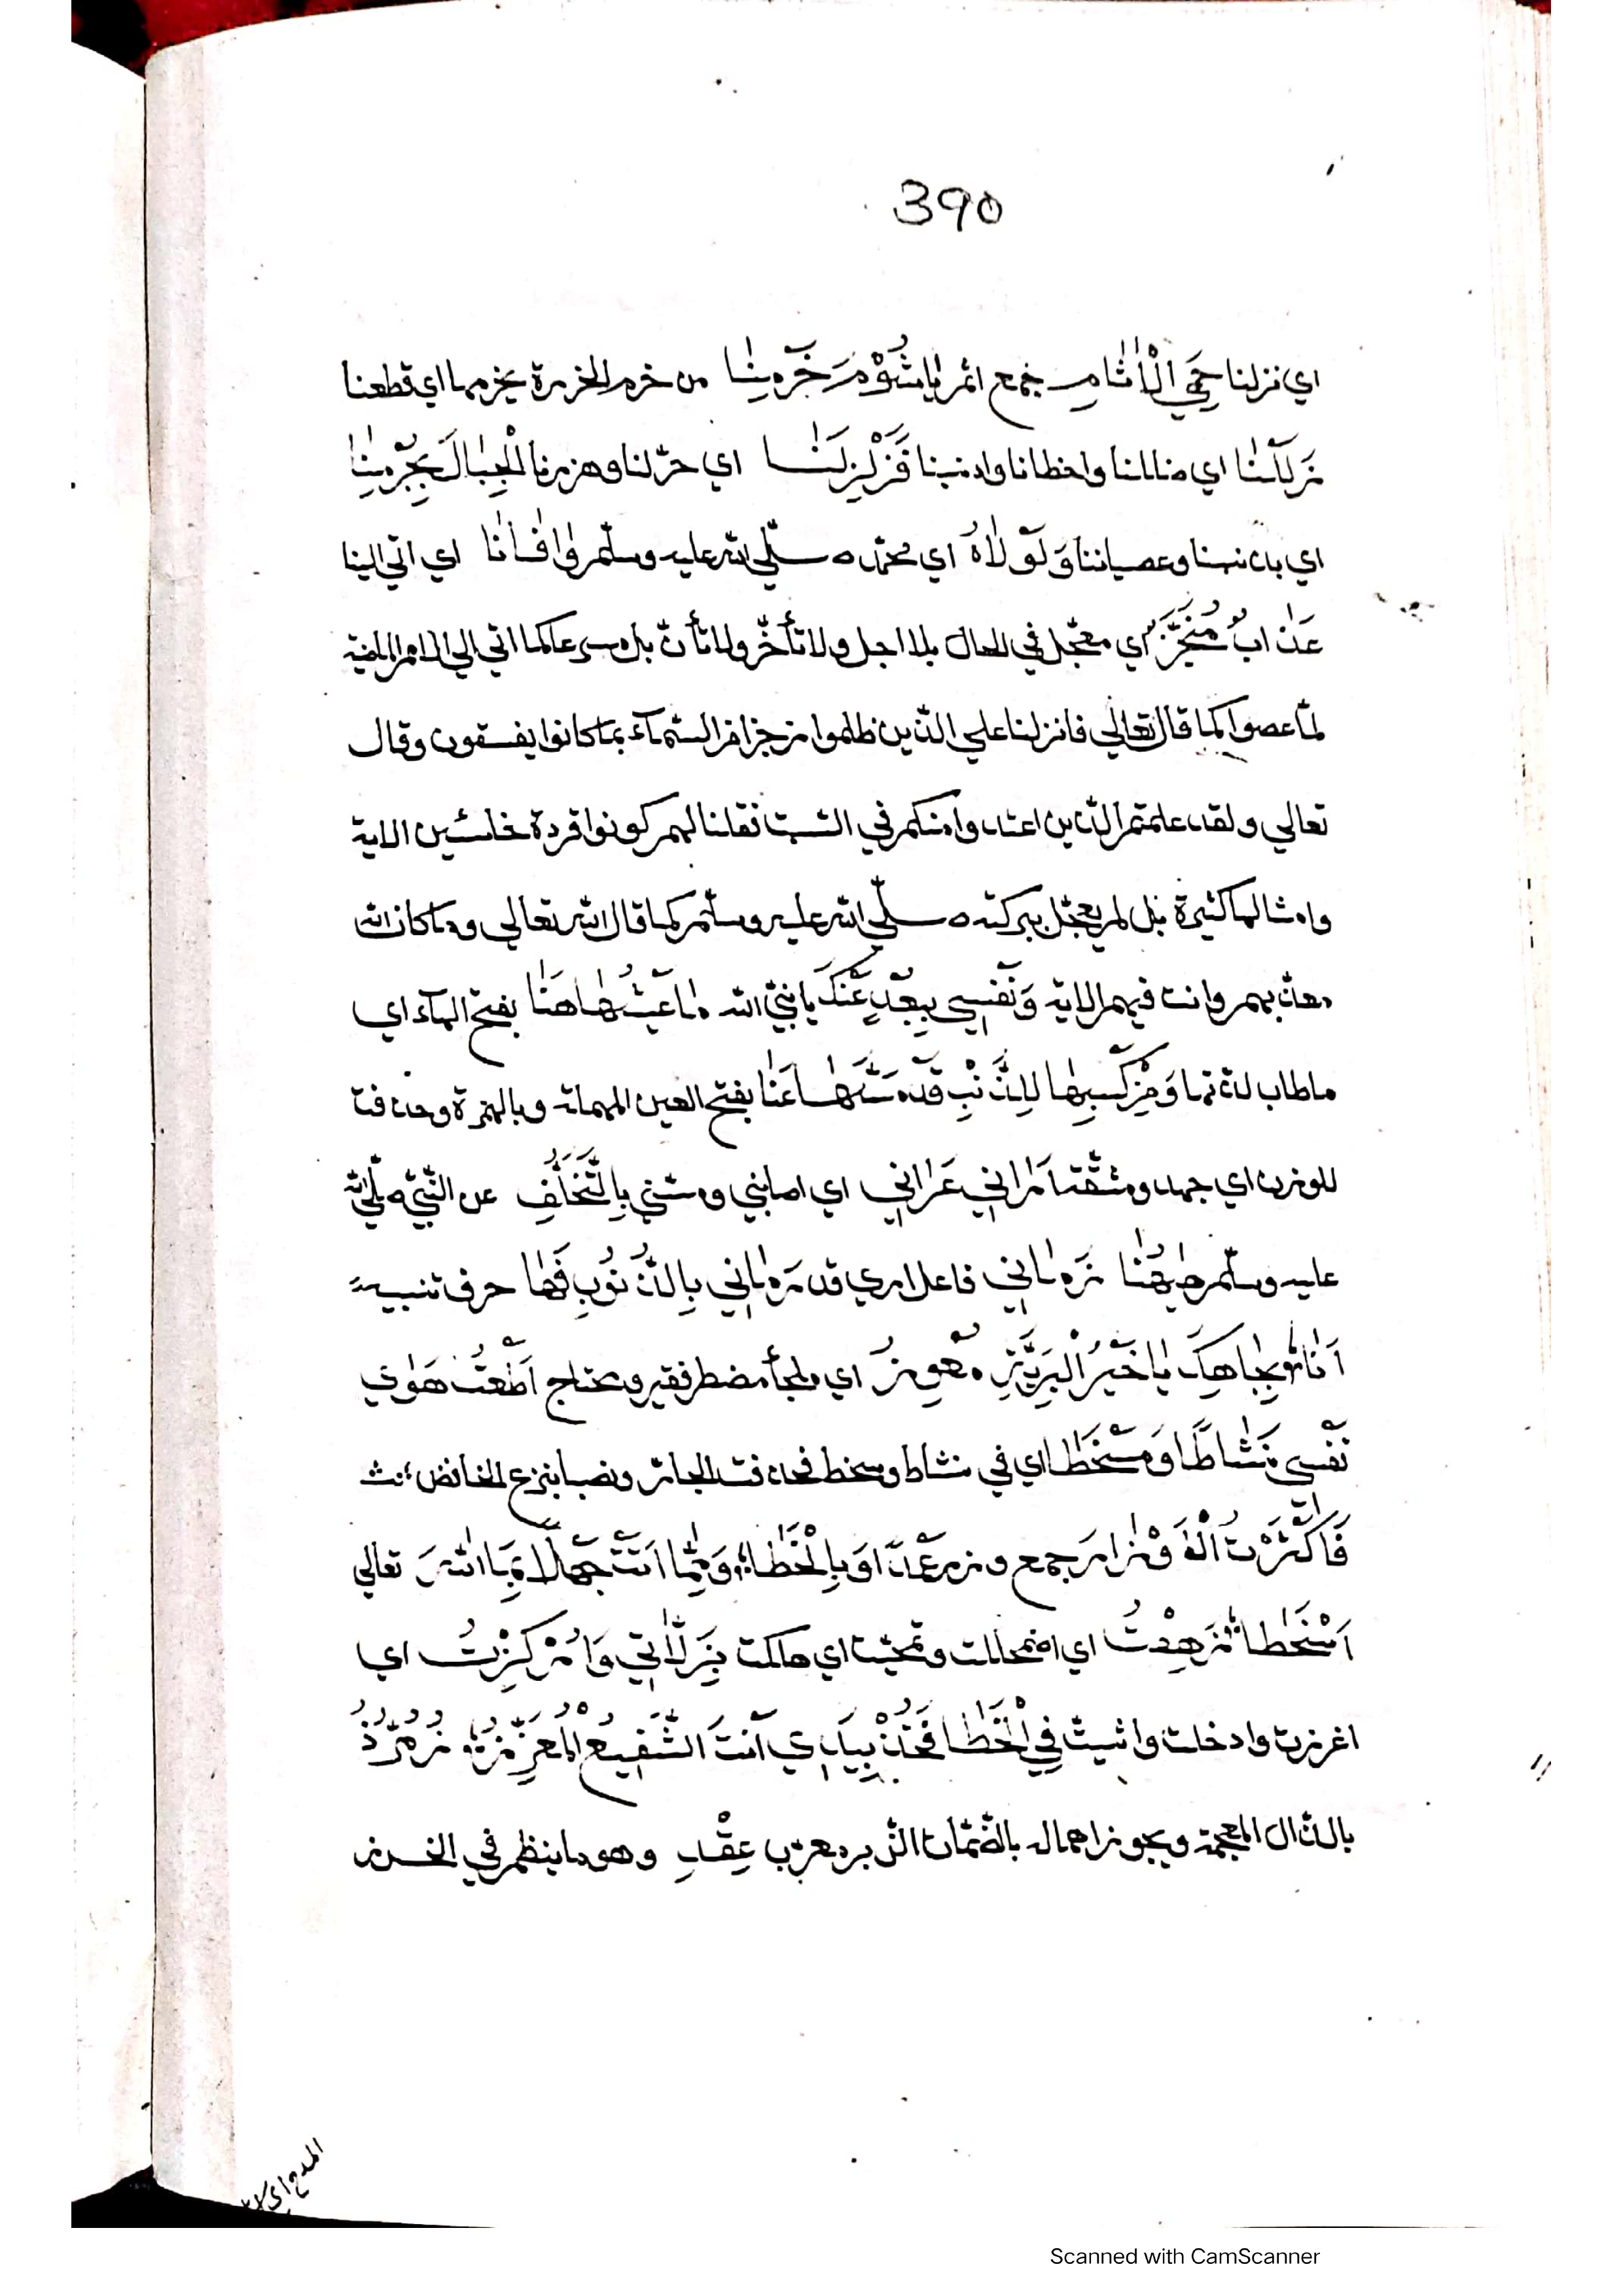 390
اي نزلنا حمي الْاٰثام جمع اثم يا شُؤْمَ خرمنا من خرم الخرزة يخرمها اي قطعنا
زللنا اي ضللنا واخطانا واذنبنا فزلزلنا اي حرّلنا وهزمنا الْجبال بجرمنا
اي بذنبنا وعصياننا وَلَوْلَاهُ اي محمّد صلّي الله عليه وسلّم وٰافٰانٰا اي اتي الينا
عَذَابٌ مُنَجَّزٌ اي معجّل في الحال بلا اجل ولا تأخّر ولا تأنّ بل سرعا كما اتي الي الامم الماضية
لمّا عصوا كما قال تعالي فانزلنا علي الذين ظلموا رجزا من السّمآء بما كانوا يفسقون وقال
تعالي ولقد علمتم الّذين اعتدوا منكم في السّبت فقلنا لهم كونوا قردة خاسئين الاية
وامثالها كثيرة بل لم يعجّل ببركته صلّي الله عليه وسلّم كما قال الله تعالي وما كان الله
معذّبهم وانت فيهم الاية وَنَفْسِي بِبُعْدٍ عَنْكَ يا نبيّ الله مٰا عَيْشُهٰا هَنٰا بفتح الهآء اي
ما طاب لذتها وَمِنْ كَسْبِهٰا لِلذَّنْبِ قَدْ مَسَّهٰا عَنٰا بفتح العين المهملة وبالهمزة وحذفت
للوزن اي جهد ومشقّة عَرٰانِي اي اصابني ومسّني بِالتَّخَلُّفِ عن النّبيّ صلّي الله
عليه وسلّم زَمٰانِي فاعل قد رَمٰانِي بِالذُّنُوبِ فَهٰا حرف تنبيه
اَنَا بِجٰاهِكَ يٰا خَيْرَ الْبَرِيَّةِ مُعْوِزٌ اي ملجأ مضطر فقير ومحتاج اَطَعْتُ هَوٰي
نَفْسِي نَشَاطًا وَمَسْخَطًا اي في نشاط وسخط فحذفت الجار ونصبا بنزع الخافض
فَاَكْثَرْتُ جمع وزر عَمْدًا اَوْ بِالْخَطَا وَمِمَّا اَتَتْ جَهْلًا بِمَا اللهَ تعالي
اَسْخَطَا زَهِقْتُ اي اضمحللت وتمحّيت اي هلكت بِزَلَّاتِي وَاُرْكِزْتُ اي
اغرزت وادخلت واثبت فِي الْخَطَا فَخُذْ بِيَدِي اَنْتَ الشَّفِيعُ الْمُعَزَّزُ زُمُرُّذُ
بالذال المعجمة ويجوز اهماله بالضمّات الزبر معرّب عِقْدِ وهو ما ينظم في الخرز
Scanned with CamScanner